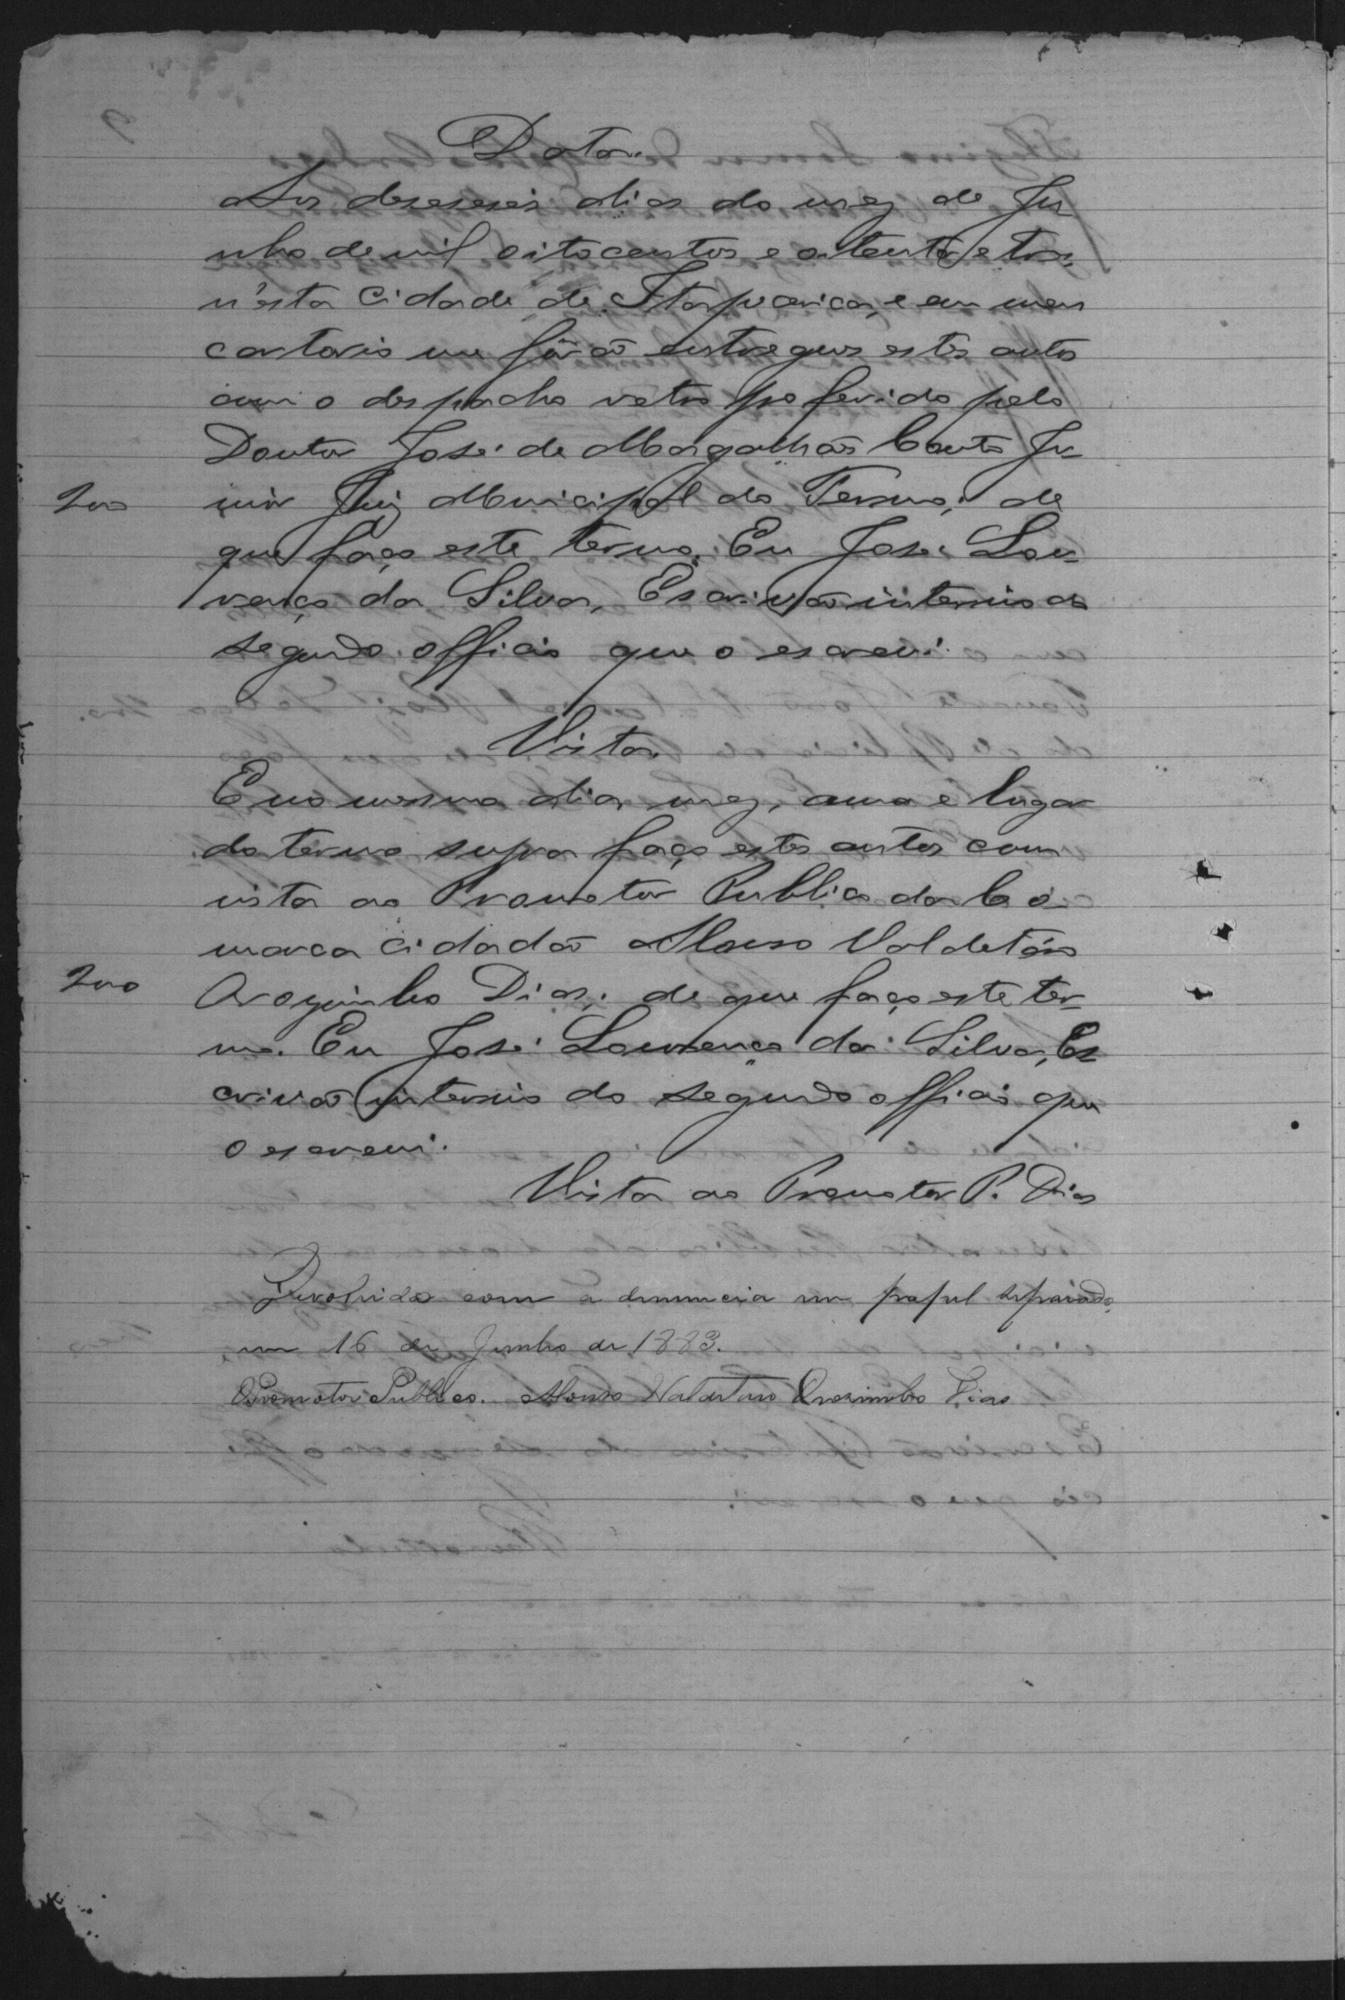 Data.
Aos deseseis dias do mez de Ju
nho de mil oitocentos e oitenta e tres
n'esta Cidade de Itaparica, e em meu
cartorio me fôrão entregues estes autos
com o despacho retro proferido pelo
Doutor José de Magalhães Couto Ju
200 nior Juiz Municipal do Termo; de
que faço este termo. Eu José Lou-
renço da Silva, Escrivão interino do
segundo officio que o escrevi.
Vista.
E no mesmo dia, mez, anno e lugar
do termo supra faço estes autos com
vista ao Promotor Publico da Co-
marca cidadão Alonso Valdetáro
200 Orozimbo Dias; de que faço este ter-
mo. Eu José Lourenço da Silva, Es
crivão interino do segundo officio que
o escrevi.
Vista ao Promotor P. Dias
Devolvido com a denuncia em papel separado,
em 16 de Junho de 1883.
O Promotor Publico. Alonso Valdetaro Orozimbo Dias